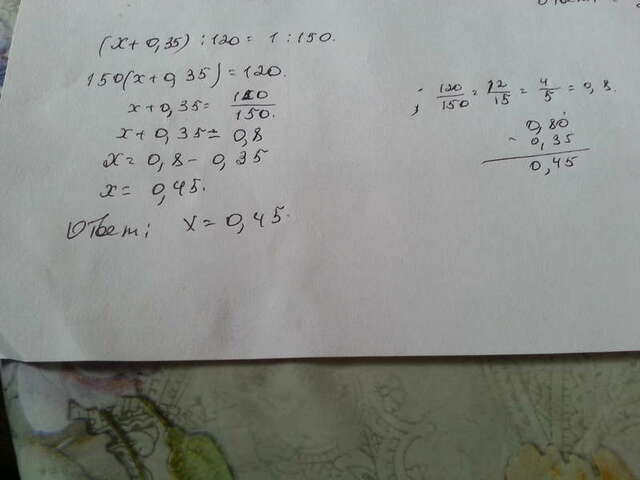 (x + 0,35) : 120 = 1 : 150.
150(x + 0,35) = 120.
x + 0,35 = 120/150.
x + 0,35 = 0,8
x = 0,8 - 0,35
x = 0,45.
Ответ: x = 0,45.
; 120/150 = 12/15 = 4/5 = 0,8.
0,80
- 0,35
0,45